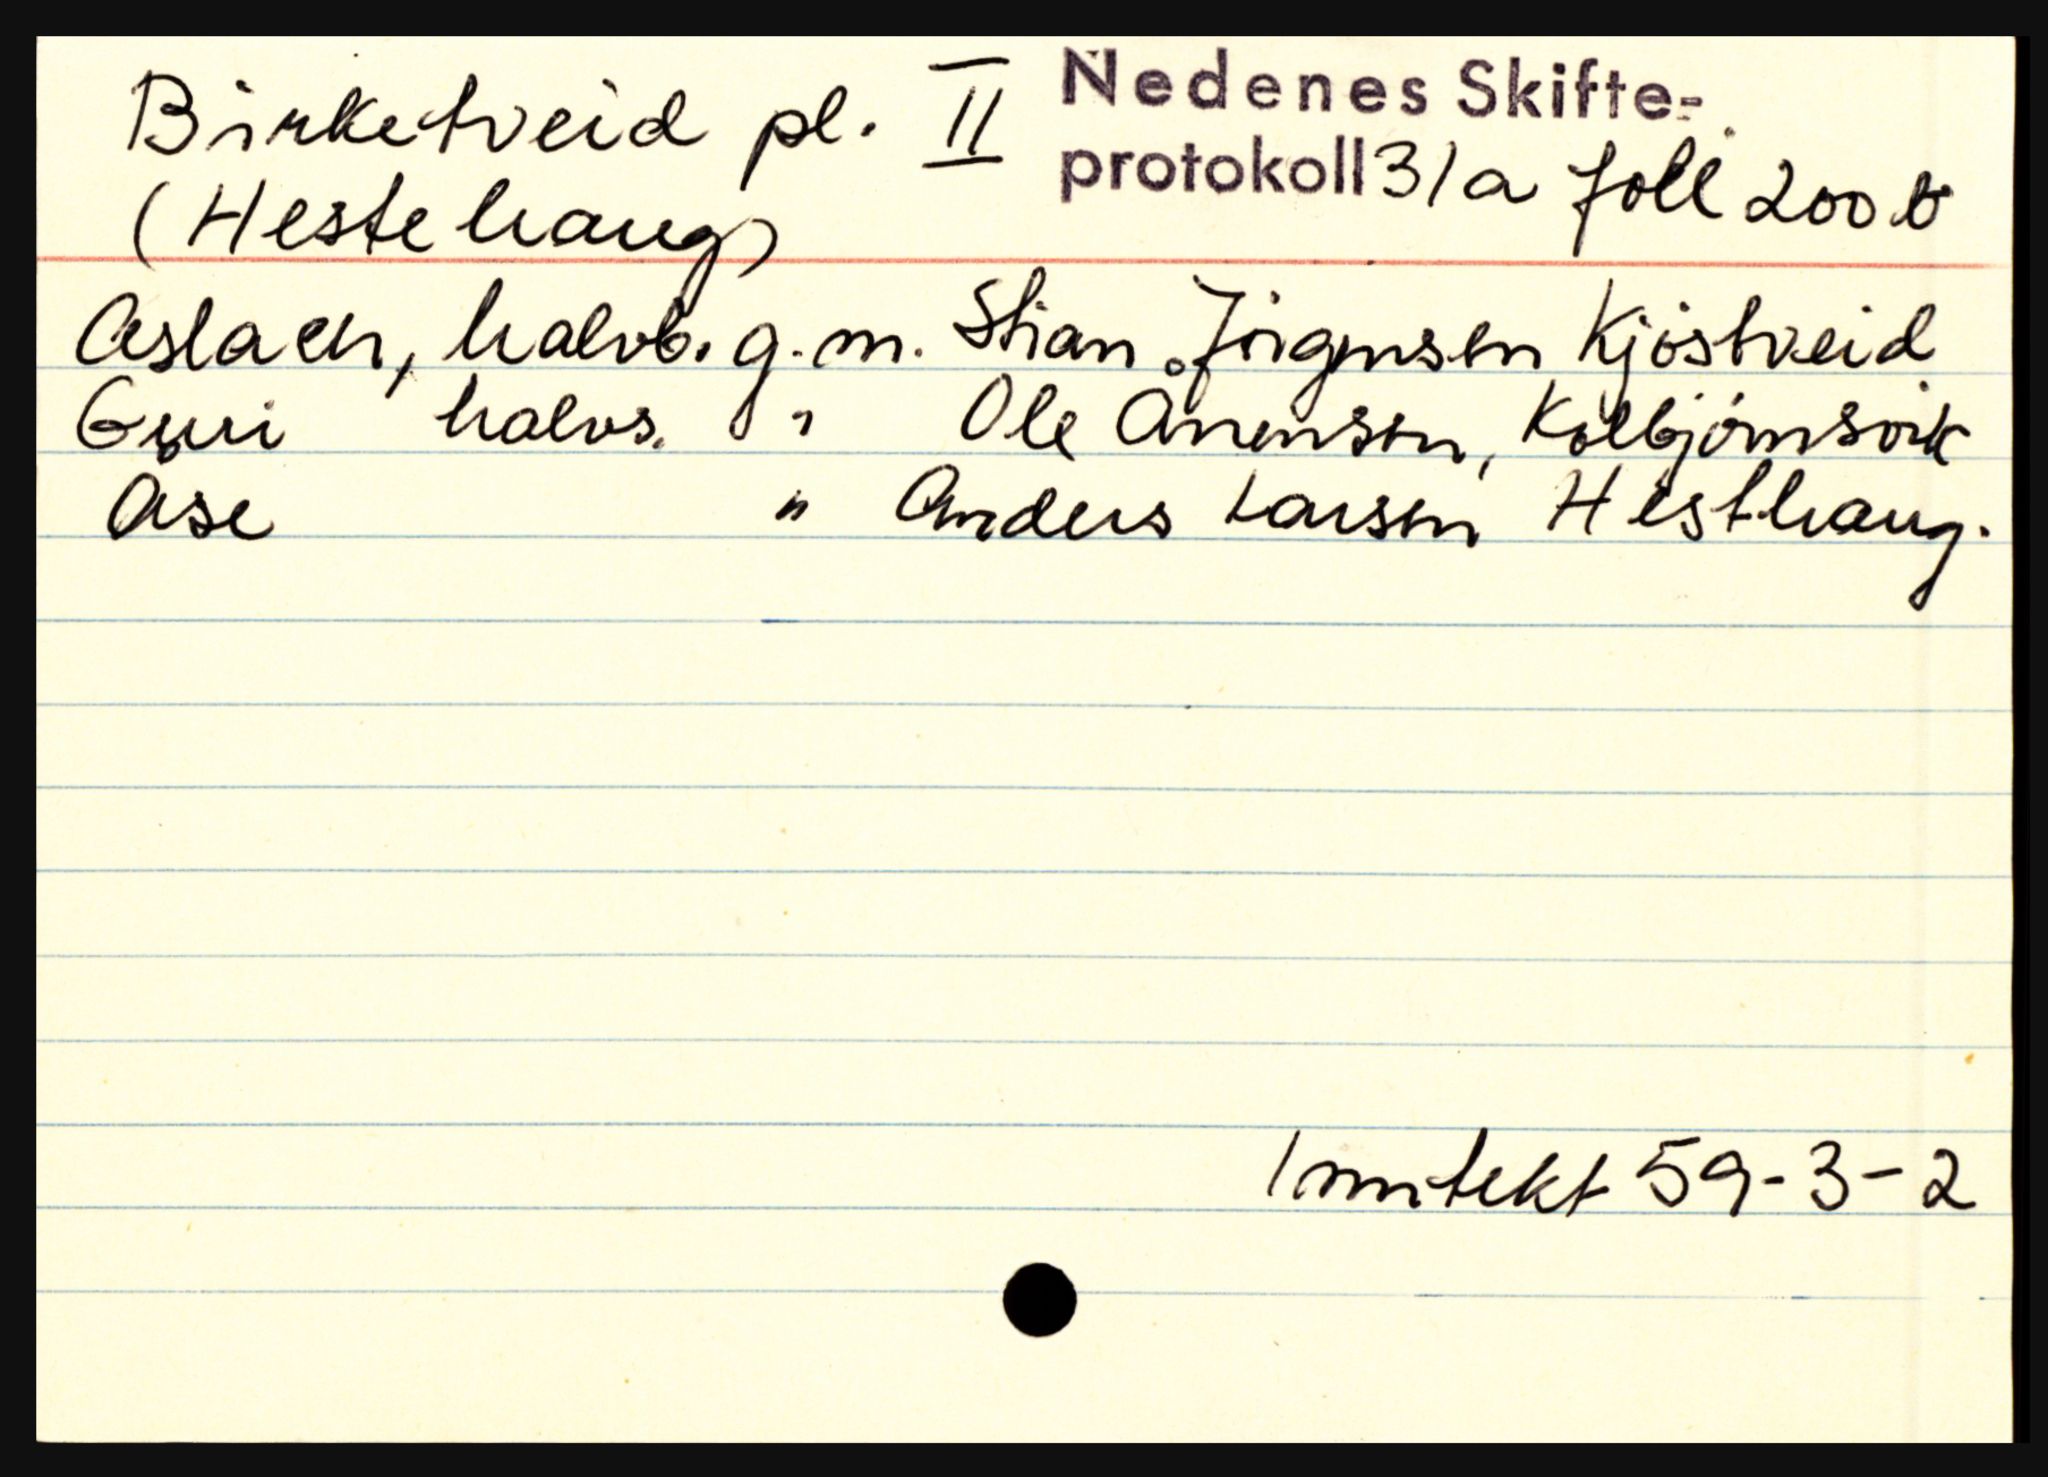 Birketveid pl. II Nedenes Skifte-
(Hestehaug) protokoll 31a foll 200 b
Aslach, halvb. g. m. Stian Jörgensen Kjöstveid
Guri halvs. " Ole Anensen, Kolbjörnsvik
Åse " Anders Larsen Hesthaug.
Inntekt 59-3-2